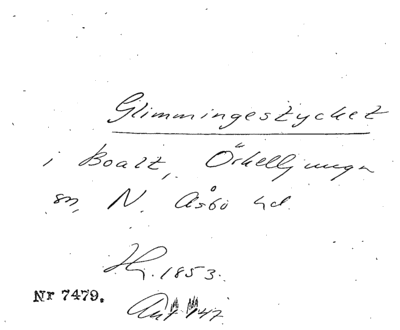 Glimmingestycket
i Boalt, Örkelljunga
sn, N. Åsbo hd.
Hy. 1853.
Nr 7479.